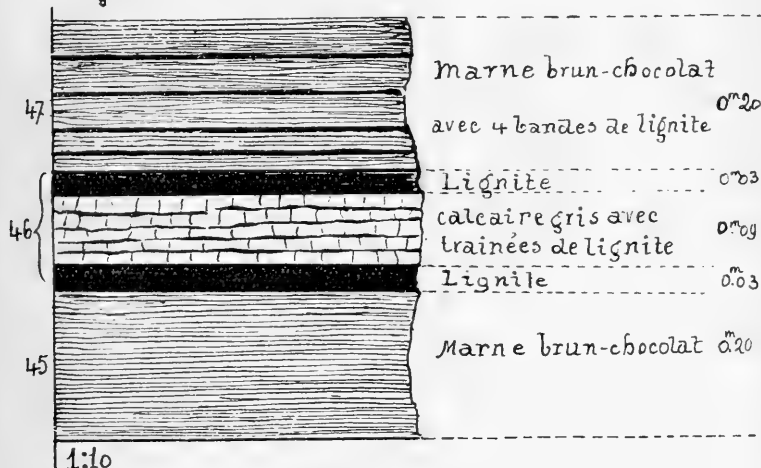 Marne brun-chocolat
47 avec 4 bandes de lignite 0m20
Lignite 0m03
46 calcaire gris avec
trainées de lignite 0m09
Lignite 0m03
45 Marne brun-chocolat 0m20
1:10